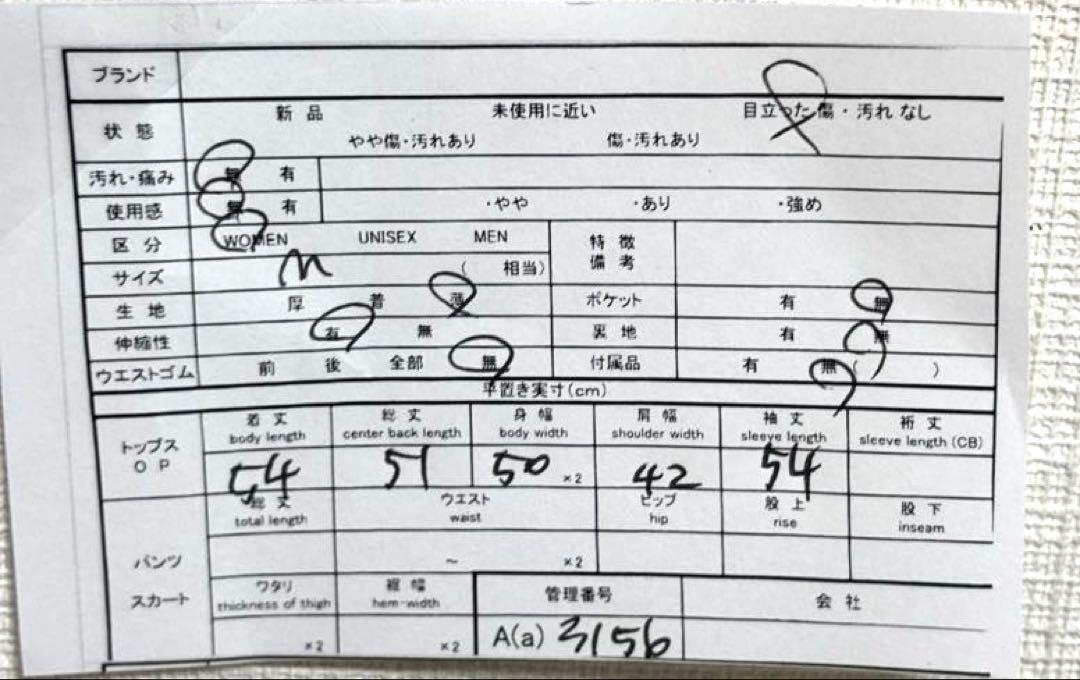 ブランド
状態 新品 未使用に近い 目立った傷・汚れなし
やや傷・汚れあり 傷・汚れあり
汚れ・痛み 無 有
使用感 無 有 ・やや ・あり ・強め
区分 WOMEN UNISEX MEN 特徴
備考
サイズ M ( 相当)
生地 厚 普 薄 ポケット 有 無
伸縮性 有 無 裏地 有 無
ウエストゴム 前 後 全部 無 付属品 有 無 ( )
平置き実寸(cm)
着丈 総丈 身幅 肩幅 袖丈 裄丈
トップス body length center back length body width shoulder width sleeve length sleeve length (CB)
OP 54 51 50 ×2 42 54
総丈 ウエスト ヒップ 股上 股下
total length waist hip rise inseam
パンツ ~ ×2
ワタリ 裾幅 管理番号 会社
スカート thickness of thigh hem-width
×2 ×2 A(a) 3156